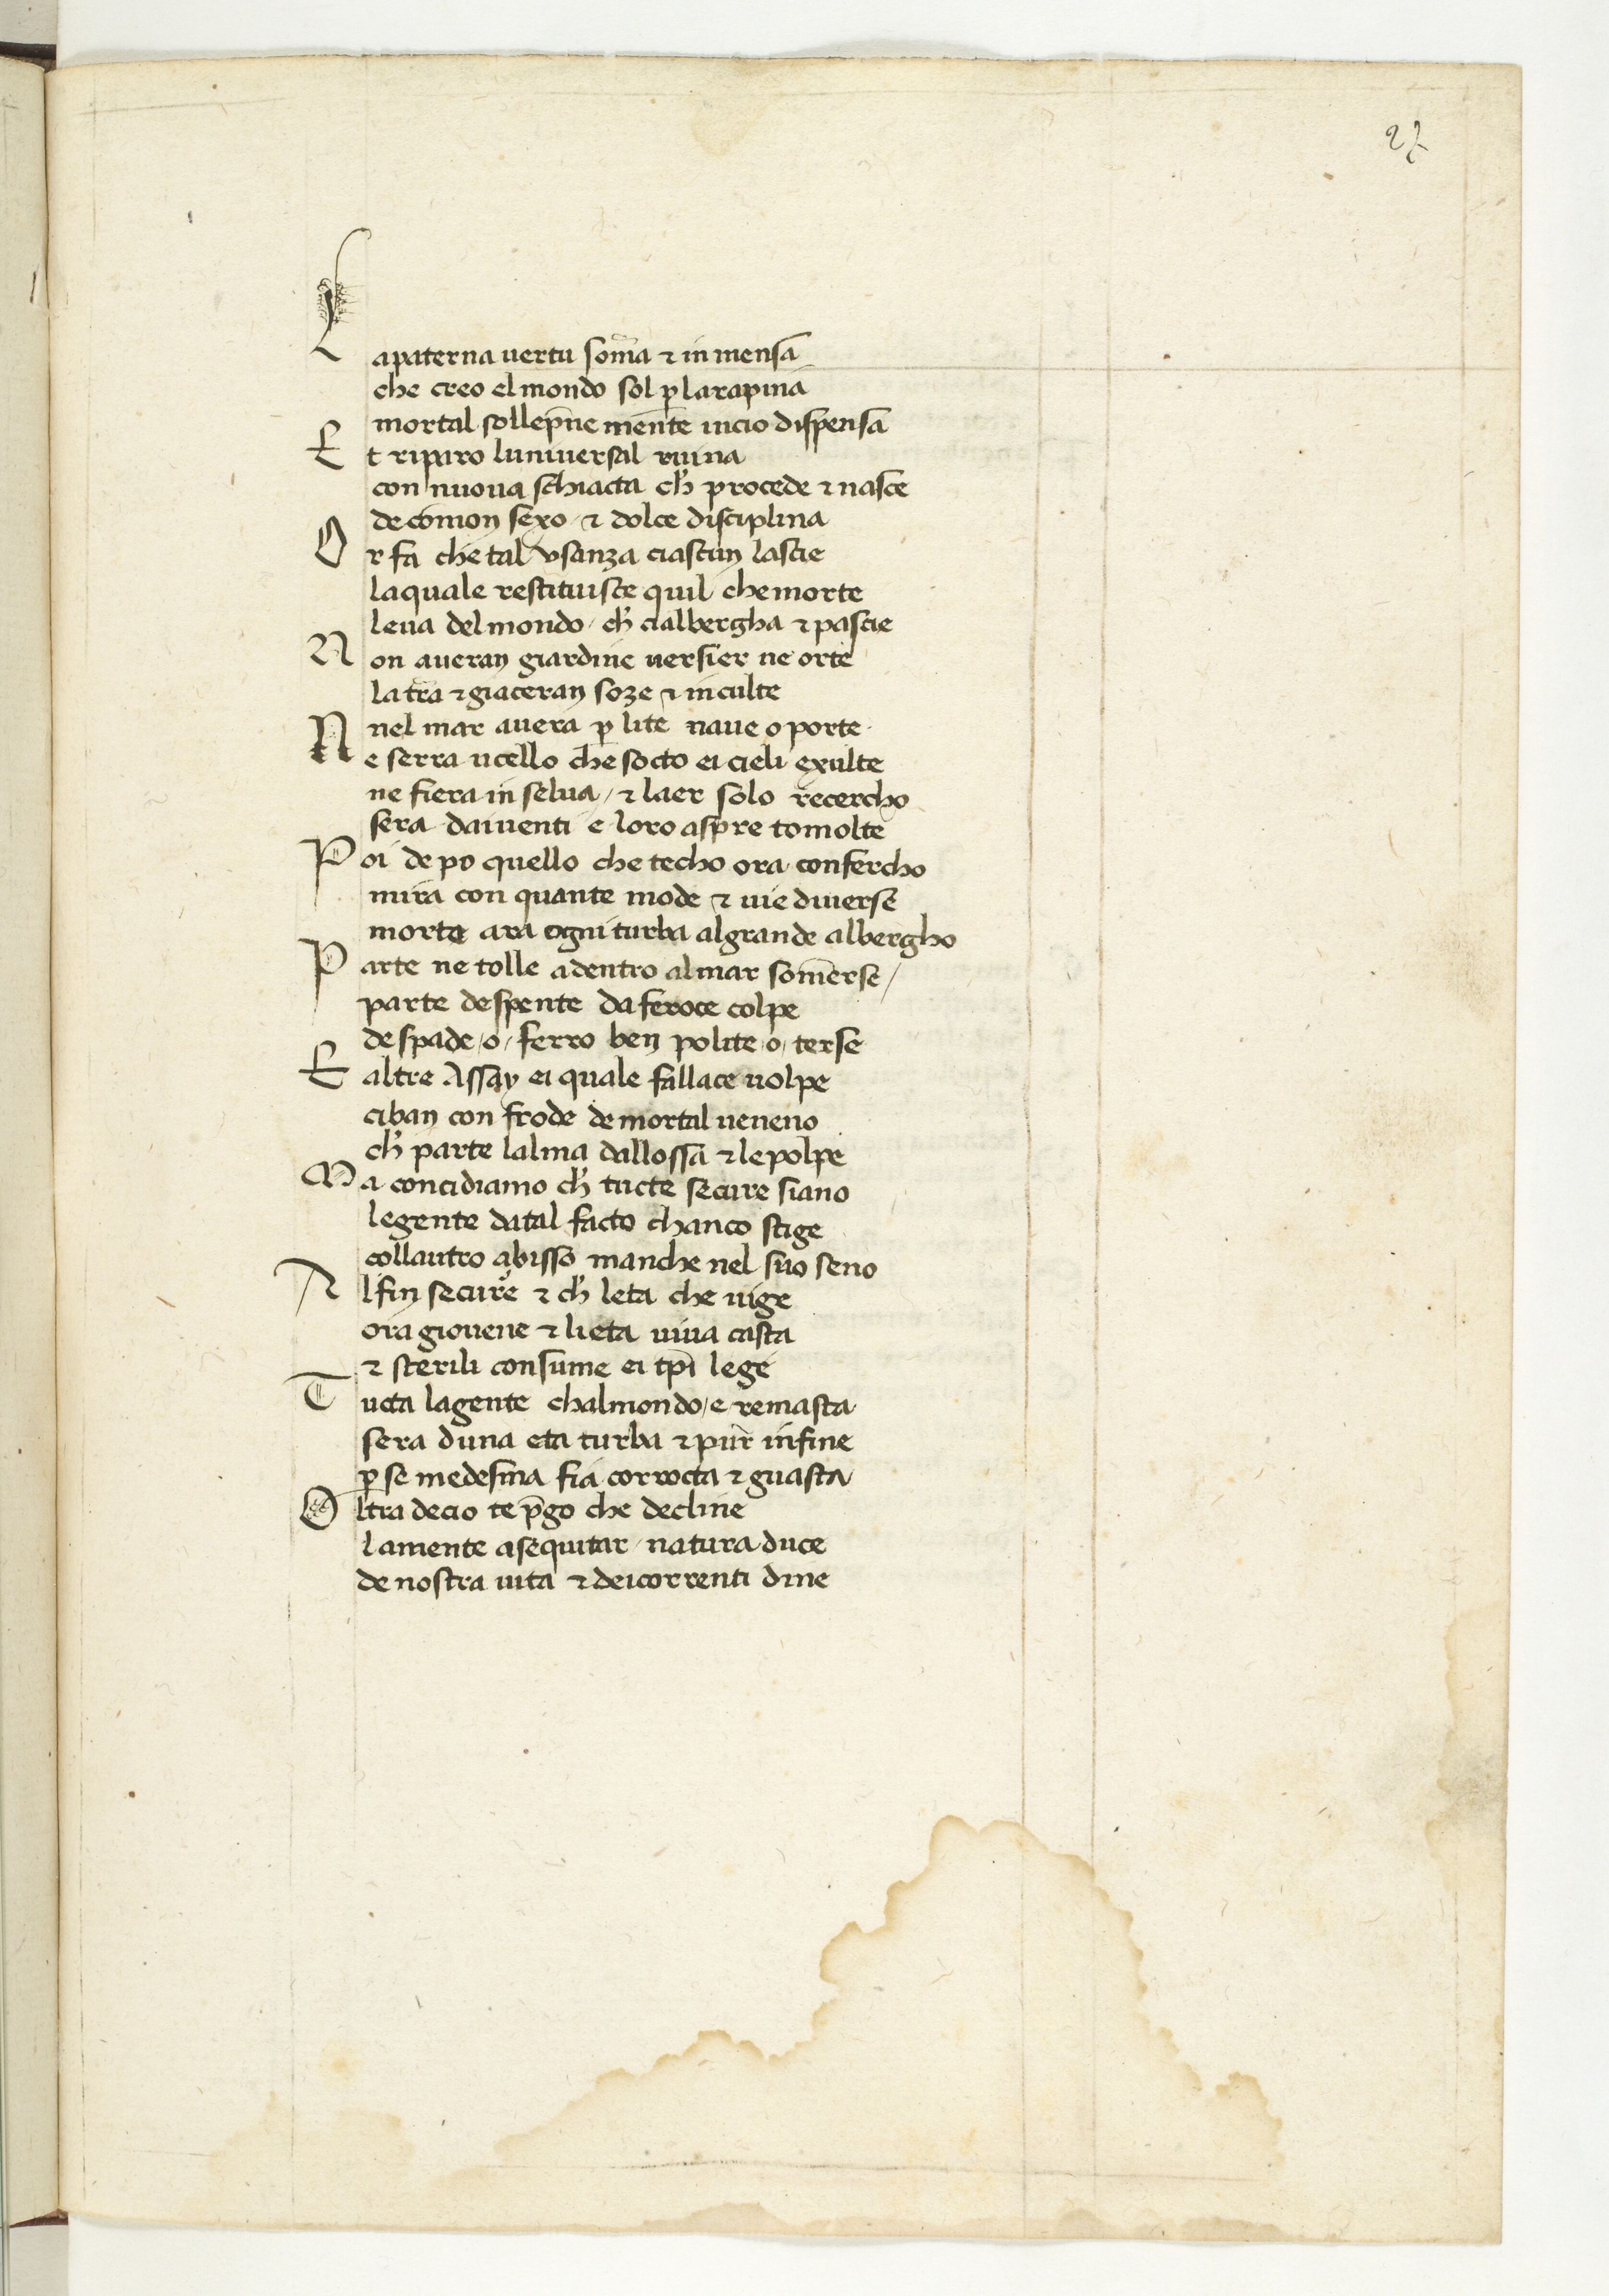 27
La paterna uertu som̃a ⁊ in mensa
che creo el mondo sol ꝑ la rapina
mortal sollep̃ne men̄te incio dispensa
Et riparo luniuersal ruina
con nuoua schiacta ch̓ procede ⁊ nasce
de com̄on sexo ⁊ dolce disciplina
Or fa che tal vsanza ciascun lascie
la quale restituisce quil che morte
leua del mondo ch̓ cialbergha ⁊ pascie
Non aueran giardine uersier ne orte
la tr̄a ⁊ giaceran soze ⁊ inculte
nel mar auera ꝑ lite naue o porte
Ne serra ucello che socto ei cieli exulte
ne fiera in selua / ⁊ laer solo recercho
sera dai uenti e loro aspre tomolte
Poi de po quello che techo ora confercho
mira con quante mode ⁊ uie diuerse
morte ara ogni turba al grande albergho
Parte ne tolle adentro al mar som̄erse /
parte despente da feroce colpe
de spade /o/ ferro ben polite /o/ terse
E altre Assay ei quale fallace uolpe
ciban con frode de mortal ueneno
ch̓ parte lalma dallossa ⁊ le polpe
Ma concidiamo ch̓ tucte secure siano
le gente da tal facto chanco stige
collautro abisso manche nel suo seno
Al fin secure ⁊ ch̓ leta che uige
ora giouene ⁊ lieta uiua casta
⁊ sterili consume ei tp̄i lege
Tucta la gente chal mondo / e remasta
sera duna eta turba ⁊ pur infine
ꝑ se medesma fia corrocta ⁊ guasta
Oltra de cio te p̄go che decline
la mente asequitar natura duce
de nostra uita ⁊ dei correnti dine